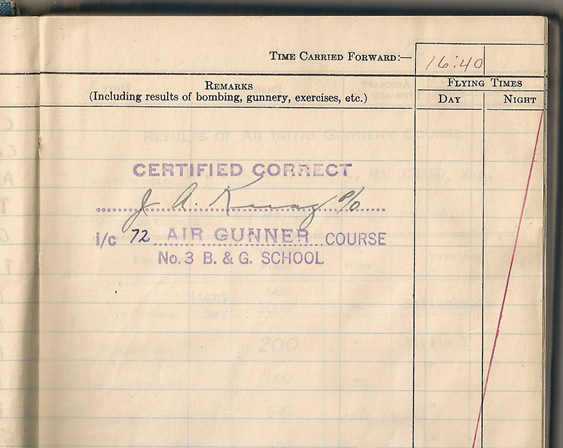 TIME CARRIED FORWARD:— 16:40
REMARKS
(Including results of bombing, gunnery, exercises, etc.)
FLYING TIMES
DAY NIGHT
CERTIFIED CORRECT
J. A. P/O
i/c 72 AIR GUNNER COURSE
No. 3 B. & G. SCHOOL
200